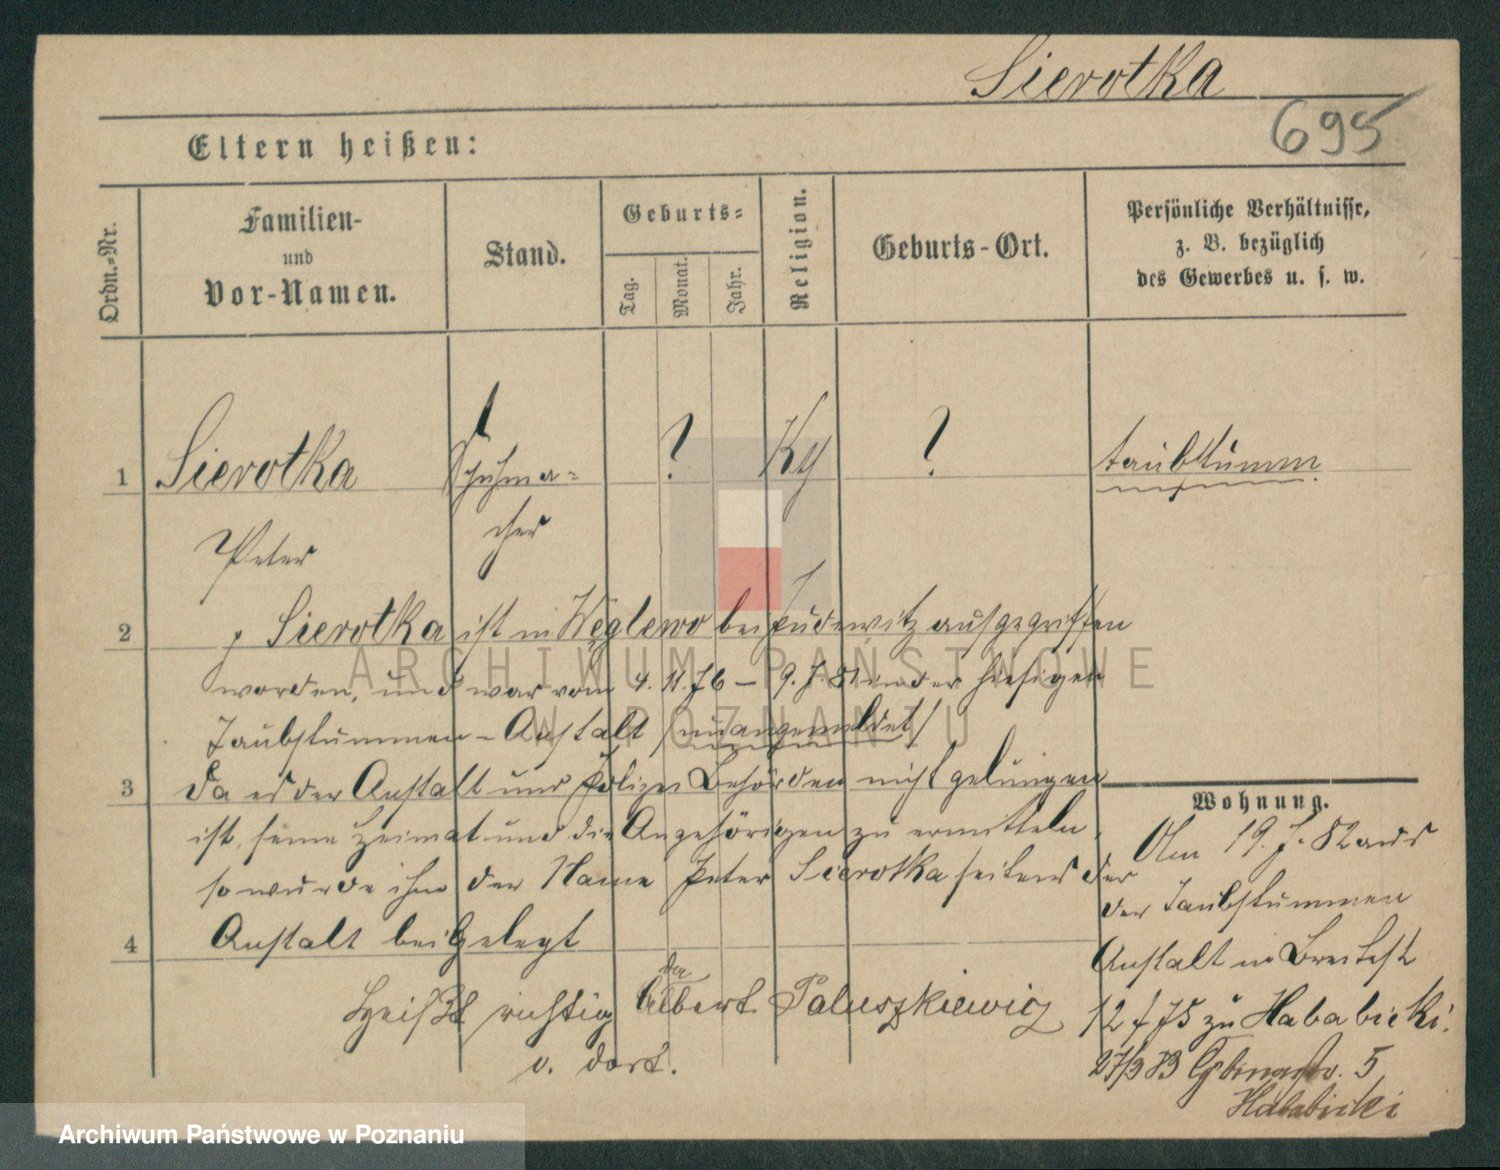 Sierotka
695
Eltern heißen:
Ordn.-Nr.
Familien-
und
Vor-Namen.
Stand.
Geburts-
Tag.
Monat.
Jahr.
Religion.
Geburts-Ort.
Persönliche Verhältnisse,
z. B. bezüglich
des Gewerbes u. s. w.
1 Sierotka Schuhma- ? ? taubstumm
Peter cher
2 Sierotka ist in Węglewo bei Pudewitz aufgegriffen
worden, und war vom 4.11.76 – 9.7.81 in der hiesigen
Taubstummen-Anstalt /unangemeldet/
3 Da es der Anstalt und Polizei Behörden nicht gelungen
ist, seine Heimat und die Angehörigen zu ermitteln,
so wurde ihm der Name Peter Sierotka seitens der
4 Anstalt beigelegt
Heißt richtig Albert Paluszkiewicz
v. dort.
Wohnung.
Am 19.7.82 aus
der Taubstummen
Anstalt in Breitestr
zu Hababicki.
27/3 83 5
Hababicki
ARCHIWUM PAŃSTWOWE
W POZNANIU
Archiwum Państwowe w Poznaniu